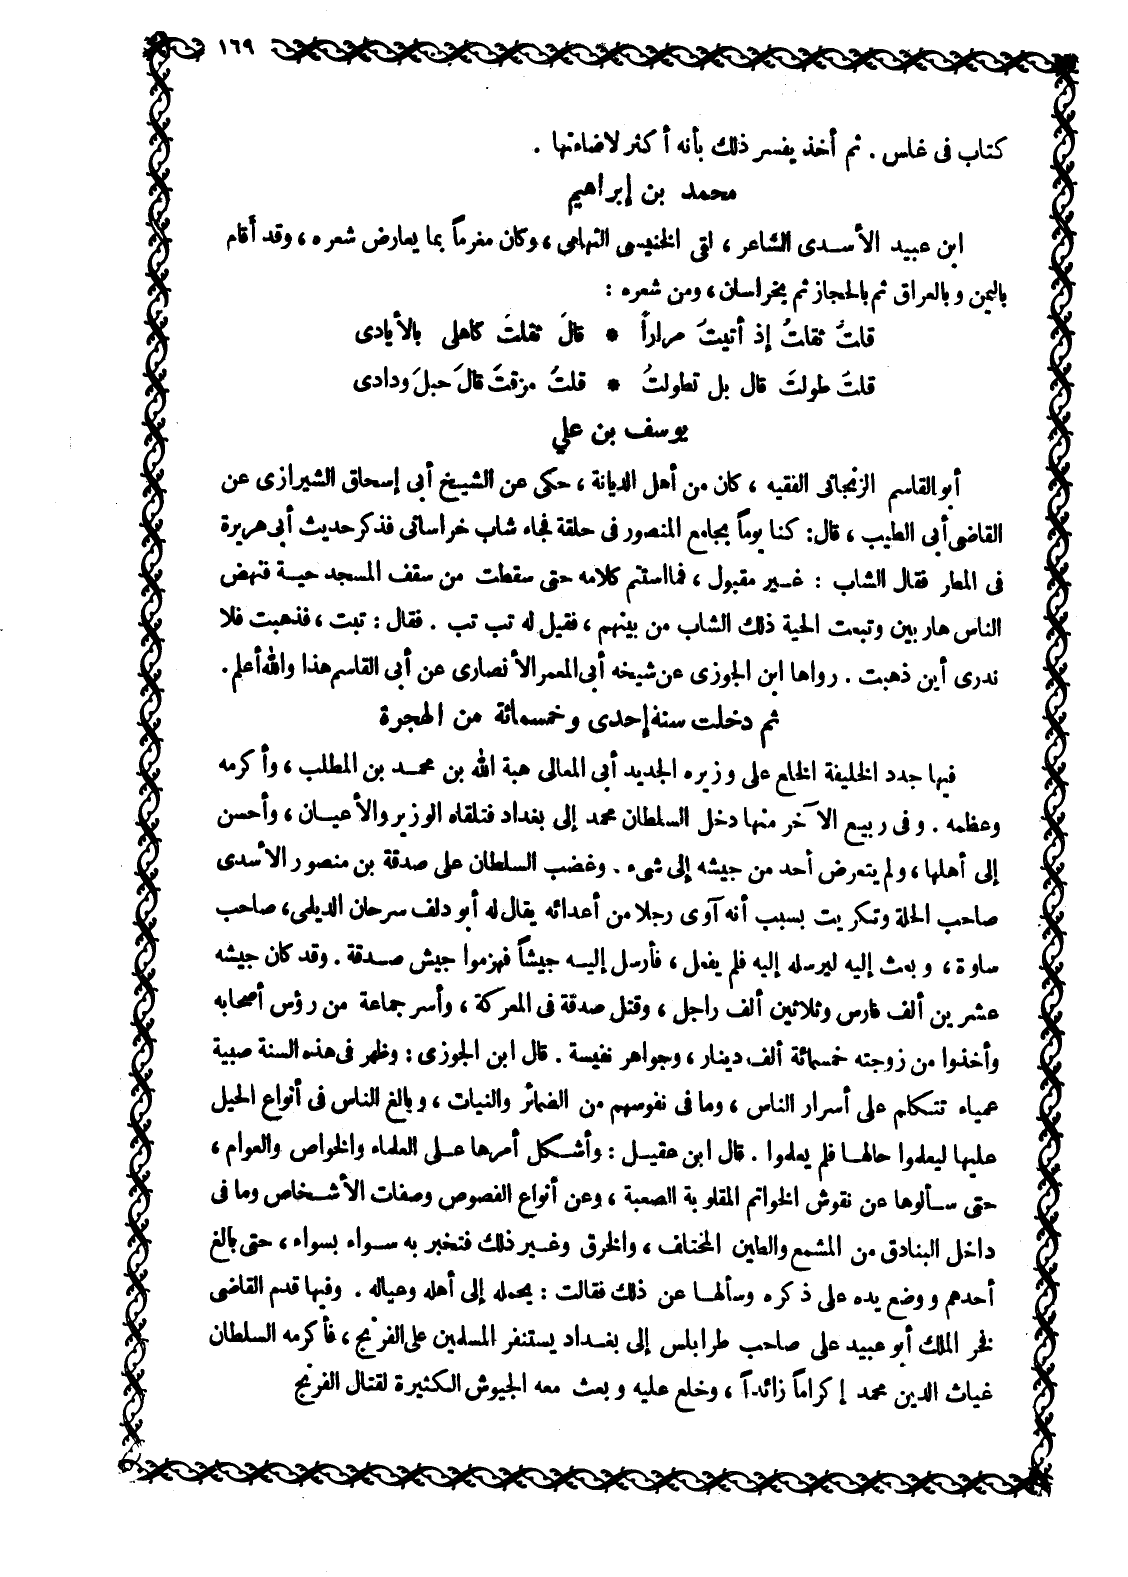 ١٦٩
كتاب فى غلس . ثم أخذ يفسر ذلك بأنه أكثر لاضاءتها .
محمد بن إبراهيم
ابن عبيد الأسدى الشاعر ، لقى الخنيسى التهامى ، وكان مغرماً بما يعارض شعره ، وقد أقام
باليمن وبالعراق ثم بالحجاز ثم بخراسان ، ومن شعره :
قلتُ ثقلتُ إذ أتيتُ مراراً * قالَ ثقلتَ كاهلى بالأيادى
قلتَ طولتَ قال بل تطولتُ * قلتُ مزقتَ قالَ حبلَ ودادى
يوسف بن علي
أبو القاسم الزنجانى الفقيه ، كان من أهل الديانة ، حكى عن الشيخ أبى إسحاق الشيرازى عن
القاضى أبى الطيب ، قال : كنا يوماً بجامع المنصور فى حلقة فجاء شاب خراسانى فذكر حديث أبى هريرة
فى المطر فقال الشاب : غير مقبول ، فما استتم كلامه حتى سقطت من سقف المسجد حية فنهض
الناس هاربين وتبعت الحية ذلك الشاب من بينهم ، فقيل له تب تب . فقال : تبت ، فذهبت فلا
ندرى أين ذهبت . رواها ابن الجوزى عن شيخه أبى المعمر الأنصارى عن أبى القاسم هذا والله أعلم .
ثم دخلت سنة إحدى وخمسمائة من الهجرة
فيها جدد الخليفة الخلع على وزيره الجديد أبي المعالى هبة الله بن محمد بن المطلب ، وأكرمه
وعظمه . وفى ربيع الآخر منها دخل السلطان محمد إلى بغداد فتلقاه الوزير والأعيان ، وأحسن
إلى أهلها ، ولم يتعرض أحد من جيشه إلى شىء . وغضب السلطان على صدقة بن منصور الأسدى
صاحب الحلة وتكريت بسبب أنه آوى رجلا من أعدائه يقال له أبو دلف سرحان الديلمى ، صاحب
ساوة ، وبعث إليه ليرسله إليه فلم يفعل ، فأرسل إليه جيشاً فهزموا جيش صدقة . وقد كان جيشه
عشرين ألف فارس وثلاثين ألف راجل ، وقتل صدقة فى المعركة ، وأسر جماعة من رؤس أصحابه
وأخذوا من زوجته خمسمائة ألف دينار ، وجواهر نفيسة . قال ابن الجوزى : وظهر فى هذه السنة صبية
عمياء تتكلم على أسرار الناس ، وما فى نفوسهم من الضمائر والنيات ، وبالغ الناس فى أنواع الحيل
عليها ليعلموا حالها فلم يعلموا . قال ابن عقيل : وأشكل أمرها على العلماء والخواص والعوام ،
حتى سألوها عن نقوش الخواتم المقلوبة الصعبة ، وعن أنواع الفصوص وصفات الأشخاص وما فى
داخل البنادق من المشمع والطين المختلف ، والخرق وغير ذلك فتخبر به سواء بسواء ، حتى بالغ
أحدهم ووضع يده على ذكره وسألها عن ذلك فقالت : يحمله إلى أهله وعياله . وفيها قدم القاضى
فخر الملك أبو عبيد على صاحب طرابلس إلى بغداد يستنفر المسلمين على الفرنج ، فأكرمه السلطان
غياث الدين محمد إكراماً زائداً ، وخلع عليه وبعث معه الجيوش الكثيرة لقتال الفرنج